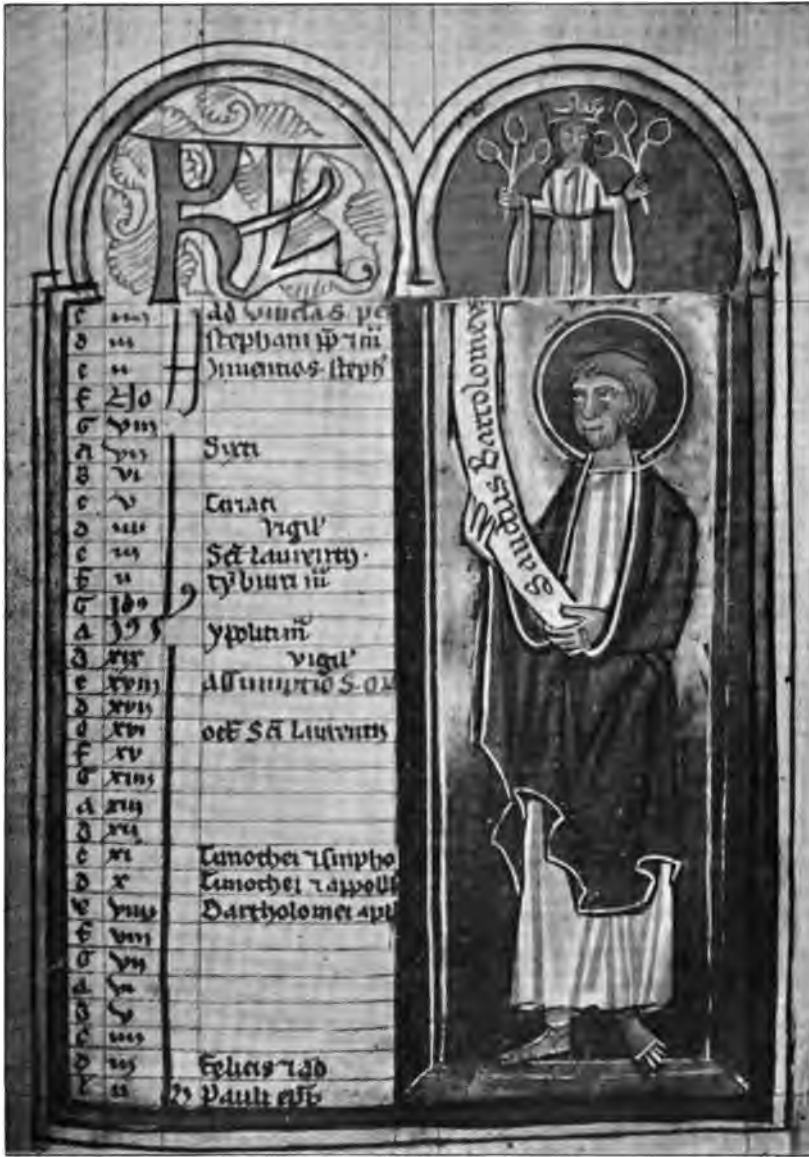 KL
c iiij ad vincla s. pe
d iij stephani pp̄ ⁊ m̄
e ij Jnventio s. steph'
f No
G viij
A vij Sixti
B vi
c v Ciriaci
d iiij vigil'
e iij Sc̄i Laurentij.
f ij tyburti m̄
G Id9
A xix ypoliti m̄
B xix vigil'
c xviij assumptio S.
d xvij
e xvi oct̄ Sc̄i Laurentij
f xv
G xiiij
A xiij
B xij
c xi Timothei ⁊ simpho
d x Timothei ⁊ appolli
e viiij Bartholomei apl
f viij
G vij
A vi
B v
c iiij
d iij felicis ⁊ ad
e ij Pauli ep̄i
Sanctus Bartolomevs